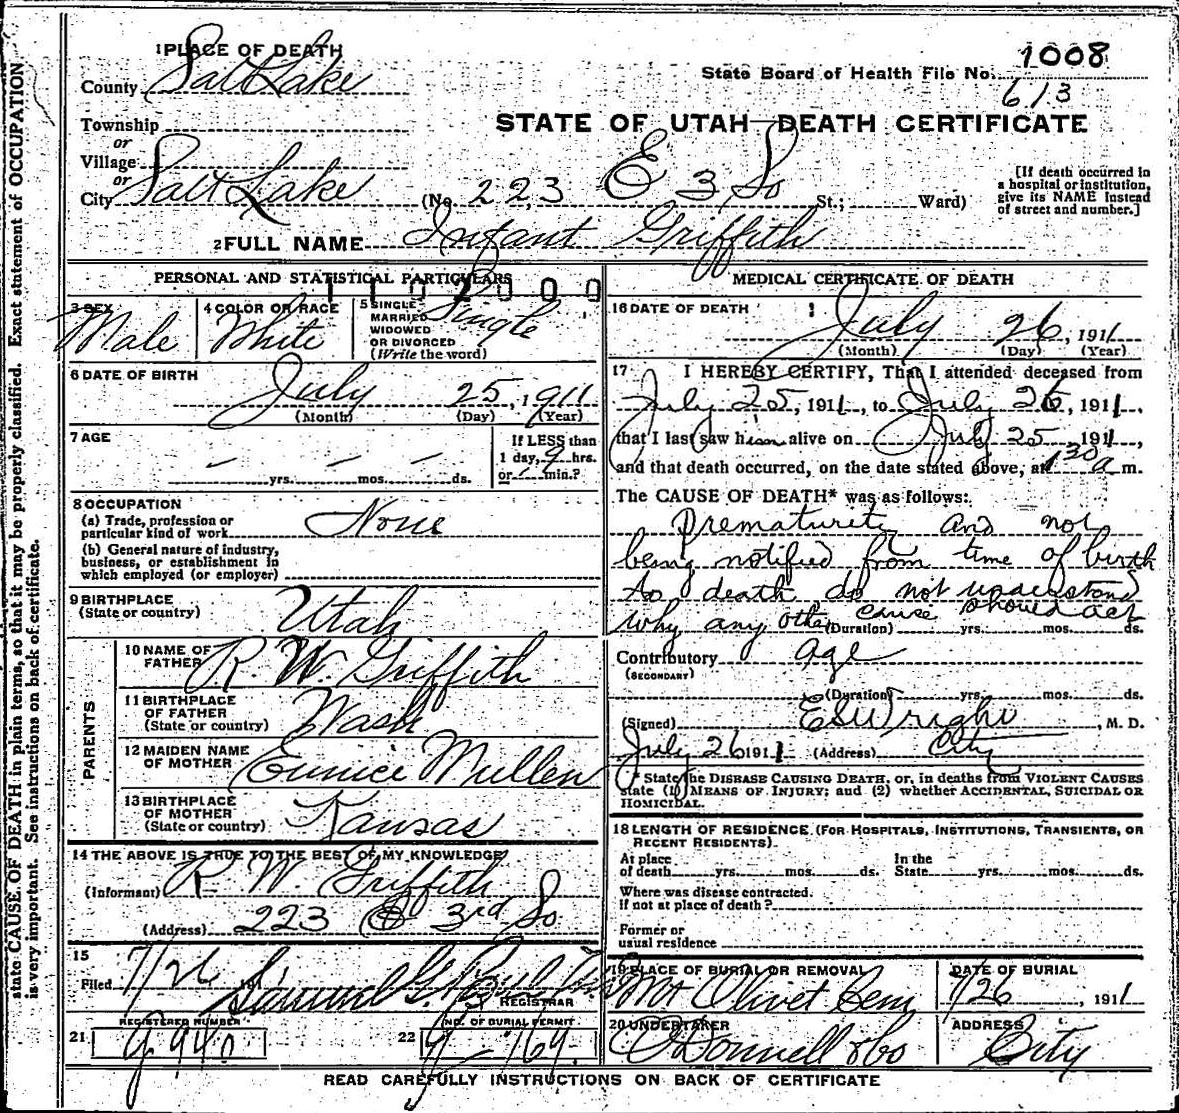 1 PLACE OF DEATH
County Salt Lake
State Board of Health File No. 1008
613
Township
or
Village
or
City Salt Lake
STATE OF UTAH—DEATH CERTIFICATE
(No. 223 E 3 So St.; Ward)
[If death occurred in a hospital or institution, give its NAME instead of street and number.]
2 FULL NAME Infant Griffith
PERSONAL AND STATISTICAL PARTICULARS
1102000
3 SEX Male
4 COLOR OR RACE White
5 SINGLE MARRIED WIDOWED OR DIVORCED (Write the word) Single
6 DATE OF BIRTH
July 25, 1911
(Month) (Day) (Year)
7 AGE
— — —
yrs. mos. ds.
If LESS than
1 day, 9 hrs.
or min.?
8 OCCUPATION
(a) Trade, profession or
particular kind of work None
(b) General nature of industry,
business, or establishment in
which employed (or employer)
9 BIRTHPLACE
(State or country) Utah
PARENTS
10 NAME OF
FATHER R. W. Griffith
11 BIRTHPLACE
OF FATHER
(State or country) Wash
12 MAIDEN NAME
OF MOTHER Eunice Mullen
13 BIRTHPLACE
OF MOTHER
(State or country) Kansas
14 THE ABOVE IS TRUE TO THE BEST OF MY KNOWLEDGE
(Informant) R. W. Griffith
(Address) 223 E 3rd So
15
Filed 7/26 191 Samuel G.
REGISTRAR
REGISTERED NUMBER
21 G 940
NO. OF BURIAL PERMIT
22 G-769
MEDICAL CERTIFICATE OF DEATH
16 DATE OF DEATH
July 26, 1911
(Month) (Day) (Year)
17 I HEREBY CERTIFY, That I attended deceased from
July 25, 1911, to July 26, 1911,
that I last saw him alive on July 25 1911,
and that death occurred, on the date stated above, at 1 30 a m.
The CAUSE OF DEATH* was as follows:
Prematurety and not
being notified from time of birth
to death do not understand
why any other cause should act
(Duration) yrs. mos. ds.
Contributory age
(SECONDARY)
(Duration) yrs. mos. ds.
(Signed) E S Wright, M. D.
July 26 1911 (Address) City
* State the DISEASE CAUSING DEATH, or, in deaths from VIOLENT CAUSES
state (1) MEANS OF INJURY; and (2) whether ACCIDENTAL, SUICIDAL OR
HOMICIDAL.
18 LENGTH OF RESIDENCE (FOR HOSPITALS, INSTITUTIONS, TRANSIENTS, OR
RECENT RESIDENTS).
At place
of death yrs. mos. ds.
In the
State yrs. mos. ds.
Where was disease contracted.
if not at place of death?
Former or
usual residence
19 PLACE OF BURIAL OR REMOVAL
Mt Olivet Cem
DATE OF BURIAL
7/26, 1911
20 UNDERTAKER
O'Donnell & Co
ADDRESS
City
READ CAREFULLY INSTRUCTIONS ON BACK OF CERTIFICATE
state CAUSE OF DEATH in plain terms, so that it may be properly classified. Exact statement of OCCUPATION
is very important. See instructions on back of certificate.